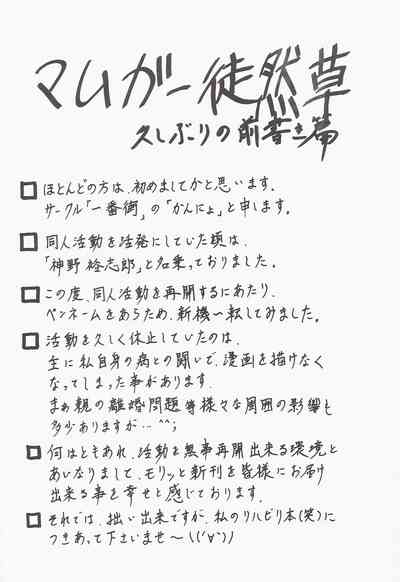 マムガー徒然草
久しぶりの前書き篇
□ほとんどの方は、初めましてかと思います。
サークル「一番街」の「かんにょ」と申します。
□同人活動を活発にしていた頃は、
「神野裕志郎」と名乗っておりました。
□この度、同人活動を再開するにあたり、
ペンネームをあらため、新機一転してみました。
□活動を久しく休止していたのは、
主に私自身の病との闘いで、漫画を描けなく
なってしまった事があります。
まぁ親の離婚問題等様々な周囲の影響も
多少ありますが…^^;
□何はともあれ、活動を無事再開出来る環境と
あいなりまして、モリッと新刊を皆様にお届け
出来る事を幸せと感じております。
□それでは、拙い出来ですが、私のリハビリ本(笑)に
つきあって下さいませ～\(('∀'))/